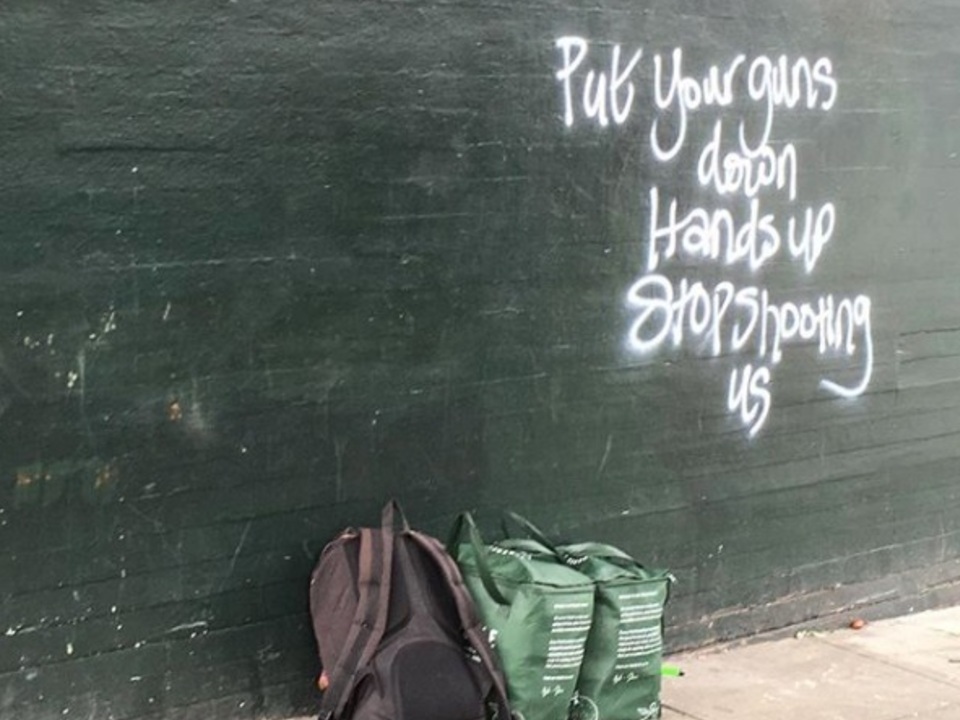 Put your guns
down
Hands up
Stop shooting
us